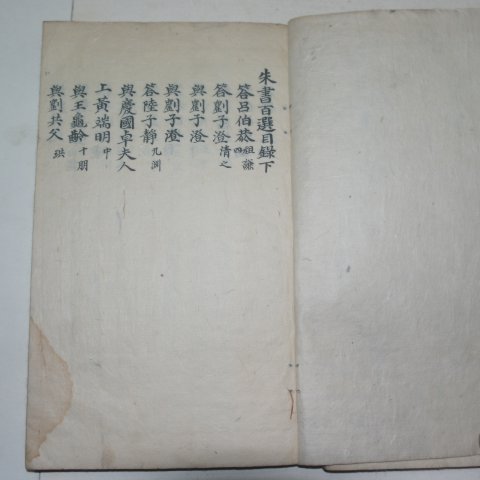 朱書百選目錄下
答呂伯恭祖謙 四
答劉子澄清之
與劉子澄
與劉子澄
答陸子靜九淵
與慶國卓夫人
上黃端明中
與王龜齡十朋
與劉共父珙